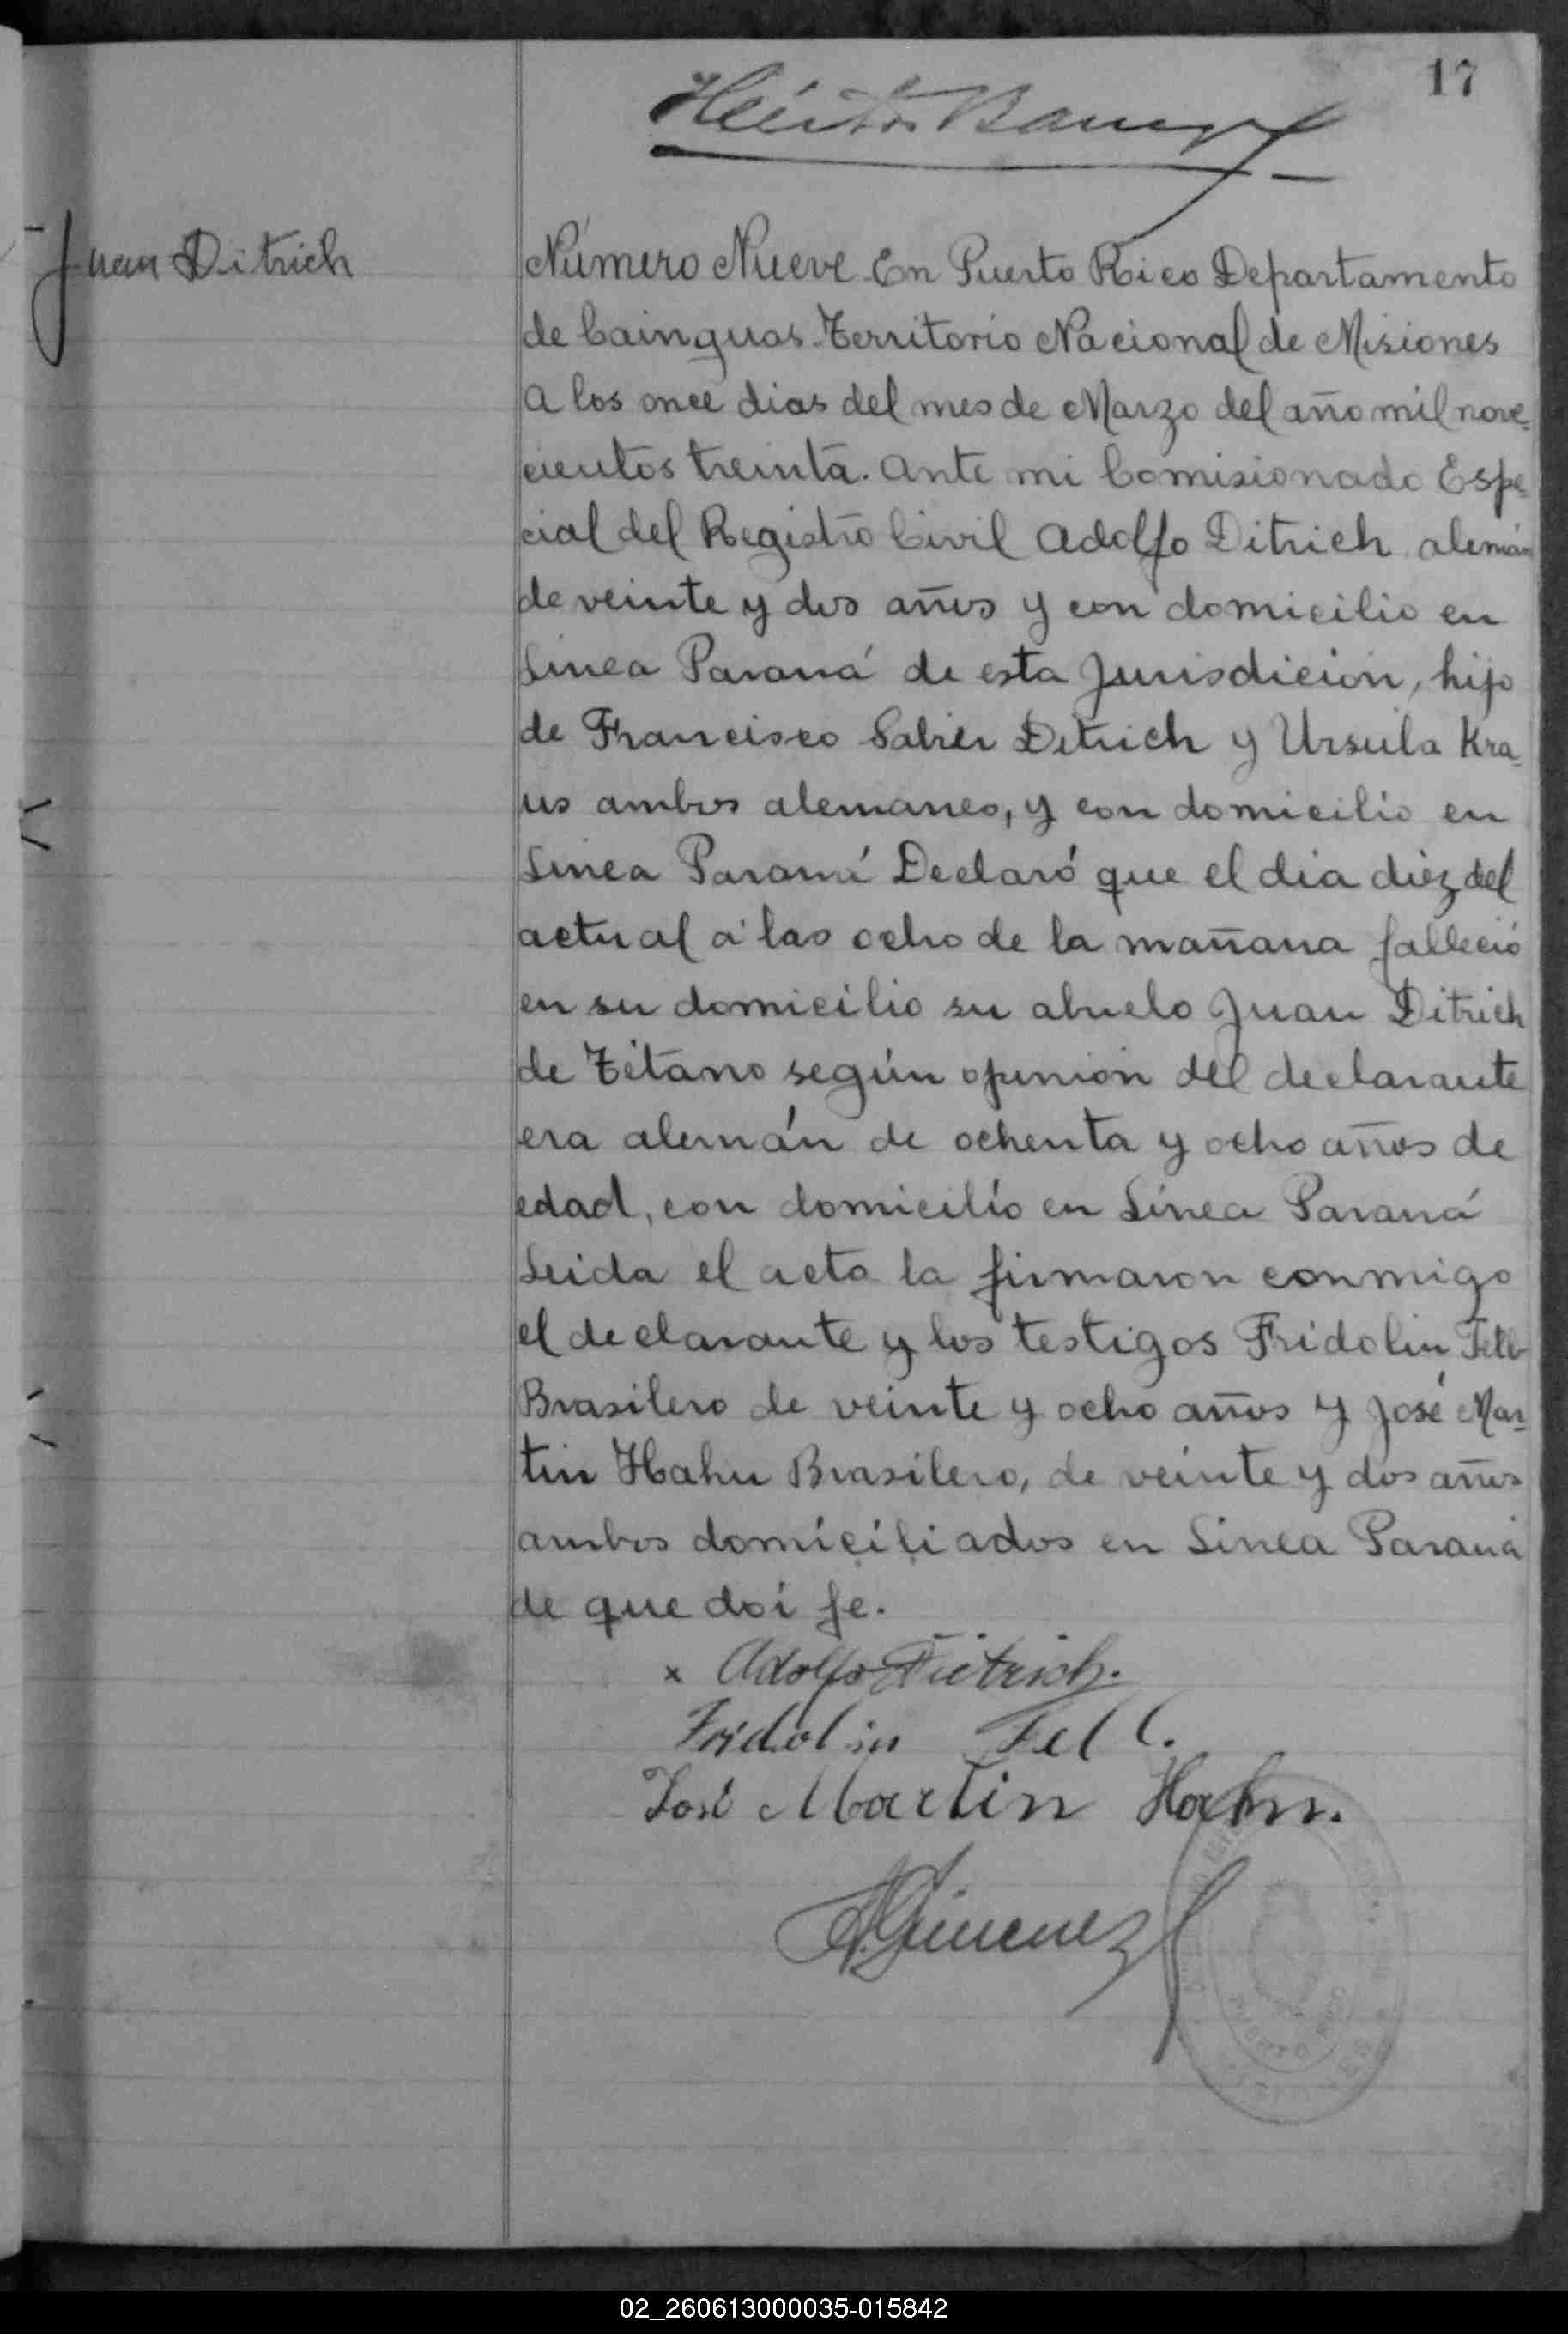 17
Juan Ditrich
Número Nueve En Puerto Rico Departamento
de Cainguas Territorio Nacional de Misiones
A los once dias del mes de Marzo del año mil nove-
cientos treinta. Ante mi Comisionado Espe-
cial del Registro Civil Adolfo Ditrich alemán
de veinte y dos años y con domicilio en
Linea Paraná de esta Jurisdicion, hijo
de Francisco Ditrich y Ursula Kra-
us ambos alemanes, y con domicilio en
Linea Paraná Declaró que el dia diez del
actual a las ocho de la mañana falleció
en su domicilio su abuelo Juan Ditrich
de Tétano según opinion del declarante
era alemán de ochenta y ocho años de
edad, con domicilio en Linea Paraná
Leida el acta la firmaron conmigo
el declarante y los testigos Fridolin Fell
Brasilero de veinte y ocho años y José Mar-
tin Hahn Brasilero, de veinte y dos años
ambos domiciliados en Linea Paraná
de que doi fe.
x Adolfo Dietrich.
Fridolin Fell.
José Martin Hahn.
A. Gimenez
PUERTO RICO
02_260613000035-015842